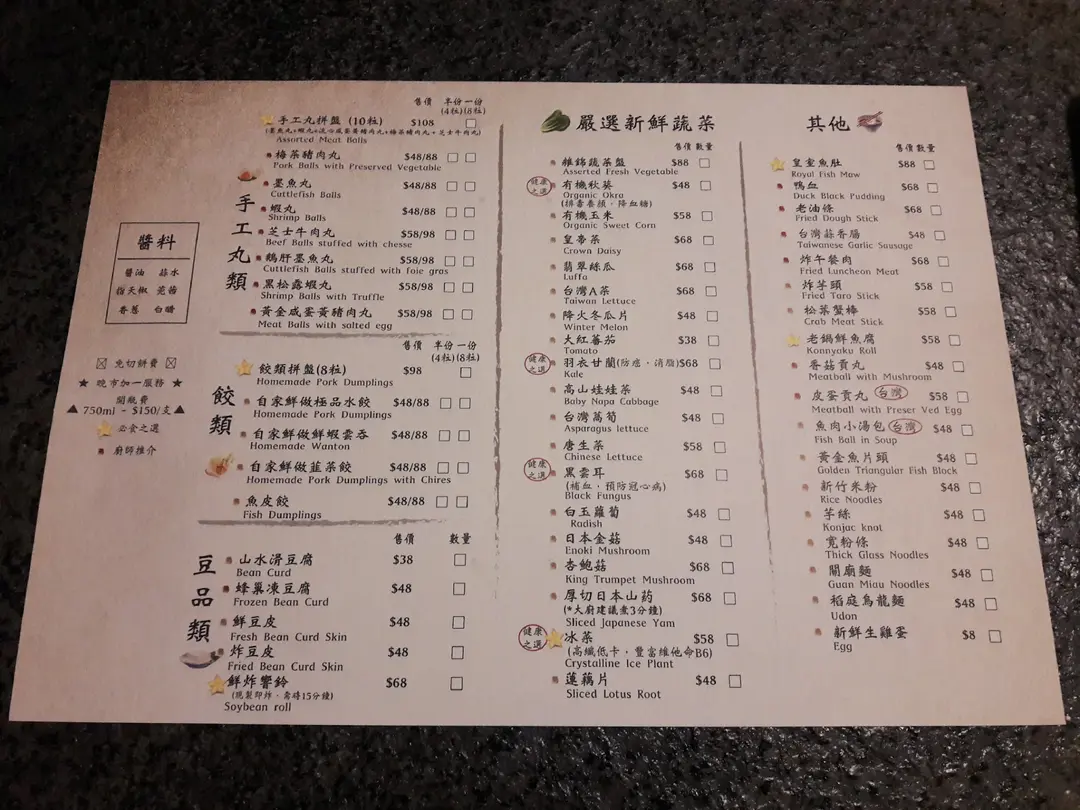 醬料
醬油 蒜水
指天椒 芫茜
香蔥 白醋
免切餅費
★ 晚市加一服務 ★
開瓶費
▲ 750ml - $150/支 ▲
必食之選
廚師推介
手工丸類
售價 半份一份
(4粒)(8粒)
手工丸拼盤 (10粒) $108
(墨魚丸+蝦丸+流心咸蛋黃豬肉丸+梅菜豬肉丸+芝士牛肉丸)
Assorted Meat Balls
梅菜豬肉丸 $48/88
Pork Balls with Preserved Vegetable
墨魚丸 $48/88
Cuttlefish Balls
蝦丸 $48/88
Shrimp Balls
芝士牛肉丸 $58/98
Beef Balls stuffed with chesse
鵝肝墨魚丸 $58/98
Cuttlefish Balls stuffed with foie gras
黑松露蝦丸 $58/98
Shrimp Balls with Truffle
黃金咸蛋黃豬肉丸 $58/98
Meat Balls with salted egg
餃類
售價 半份一份
(4粒)(8粒)
餃類拼盤(8粒) $98
Homemade Pork Dumplings
自家鮮做極品水餃 $48/88
Homemade Pork Dumplings
自家鮮做鮮蝦雲吞 $48/88
Homemade Wanton
自家鮮做韮菜餃 $48/88
Homemade Pork Dumplings with Chires
魚皮餃 $48/88
Fish Dumplings
豆品類
售價 數量
山水滑豆腐 $38
Bean Curd
蜂巢凍豆腐 $48
Frozen Bean Curd
鮮豆皮 $48
Fresh Bean Curd Skin
炸豆皮 $48
Fried Bean Curd Skin
鮮炸響鈴 $68
(現製即炸，需時15分鐘)
Soybean roll
嚴選新鮮蔬菜
售價 數量
雜錦蔬菜盤 $88
Asserted Fresh Vegetable
健康之選
有機秋葵 $48
Organic Okra
(排毒養顏，降血糖)
有機玉米 $58
Organic Sweet Corn
皇帝菜 $68
Crown Daisy
翡翠絲瓜 $68
Luffa
台灣A菜 $68
Taiwan Lettuce
降火冬瓜片 $48
Winter Melon
大紅蕃茄 $38
Tomato
健康之選
羽衣甘蘭(防癌，消脂) $68
Kale
高山娃娃菜 $48
Baby Napa Cabbage
台灣萵筍 $48
Asparagus lettuce
唐生菜 $58
Chinese Lettuce
健康之選
黑雲耳 $68
(補血，預防冠心病)
Black Fungus
白玉蘿蔔 $48
Radish
日本金菇 $48
Enoki Mushroom
杏鮑菇 $68
King Trumpet Mushroom
厚切日本山药 $68
(*大廚建議煮3分鐘)
Sliced Japanese Yam
健康之選
冰菜 $58
(高纖低卡，豐富維他命B6)
Crystalline Ice Plant
蓮藕片 $48
Sliced Lotus Root
其他
售價 數量
皇室魚肚 $88
Royal Fish Maw
鴨血 $68
Duck Black Pudding
老油條 $68
Fried Dough Stick
台灣蒜香腸 $48
Taiwanese Garlic Sausage
炸午餐肉 $68
Fried Luncheon Meat
炸芋頭 $58
Fried Taro Stick
松葉蟹棒 $58
Crab Meat Stick
老鍋鮮魚腐 $58
Konnyaku Roll
香菇貢丸 $48
Meatball with Mushroom
皮蛋貢丸 台灣 $58
Meatball with Preser Ved Egg
魚肉小湯包 台灣 $48
Fish Ball in Soup
黃金魚片頭 $48
Golden Triangular Fish Block
新竹米粉 $48
Rice Noodles
芋絲 $48
Konjac knot
寬粉條 $48
Thick Glass Noodles
關廟麵 $48
Guan Miau Noodles
稻庭烏龍麵 $48
Udon
新鮮生雞蛋 $8
Egg